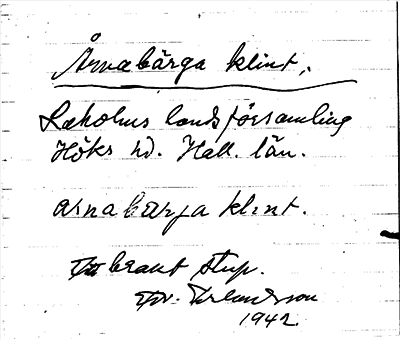 Årnabärga klint,
Laholms landsförsamling
Höks hd. Hall. län.
arnabarja klint.
Ett brant stup.
1942